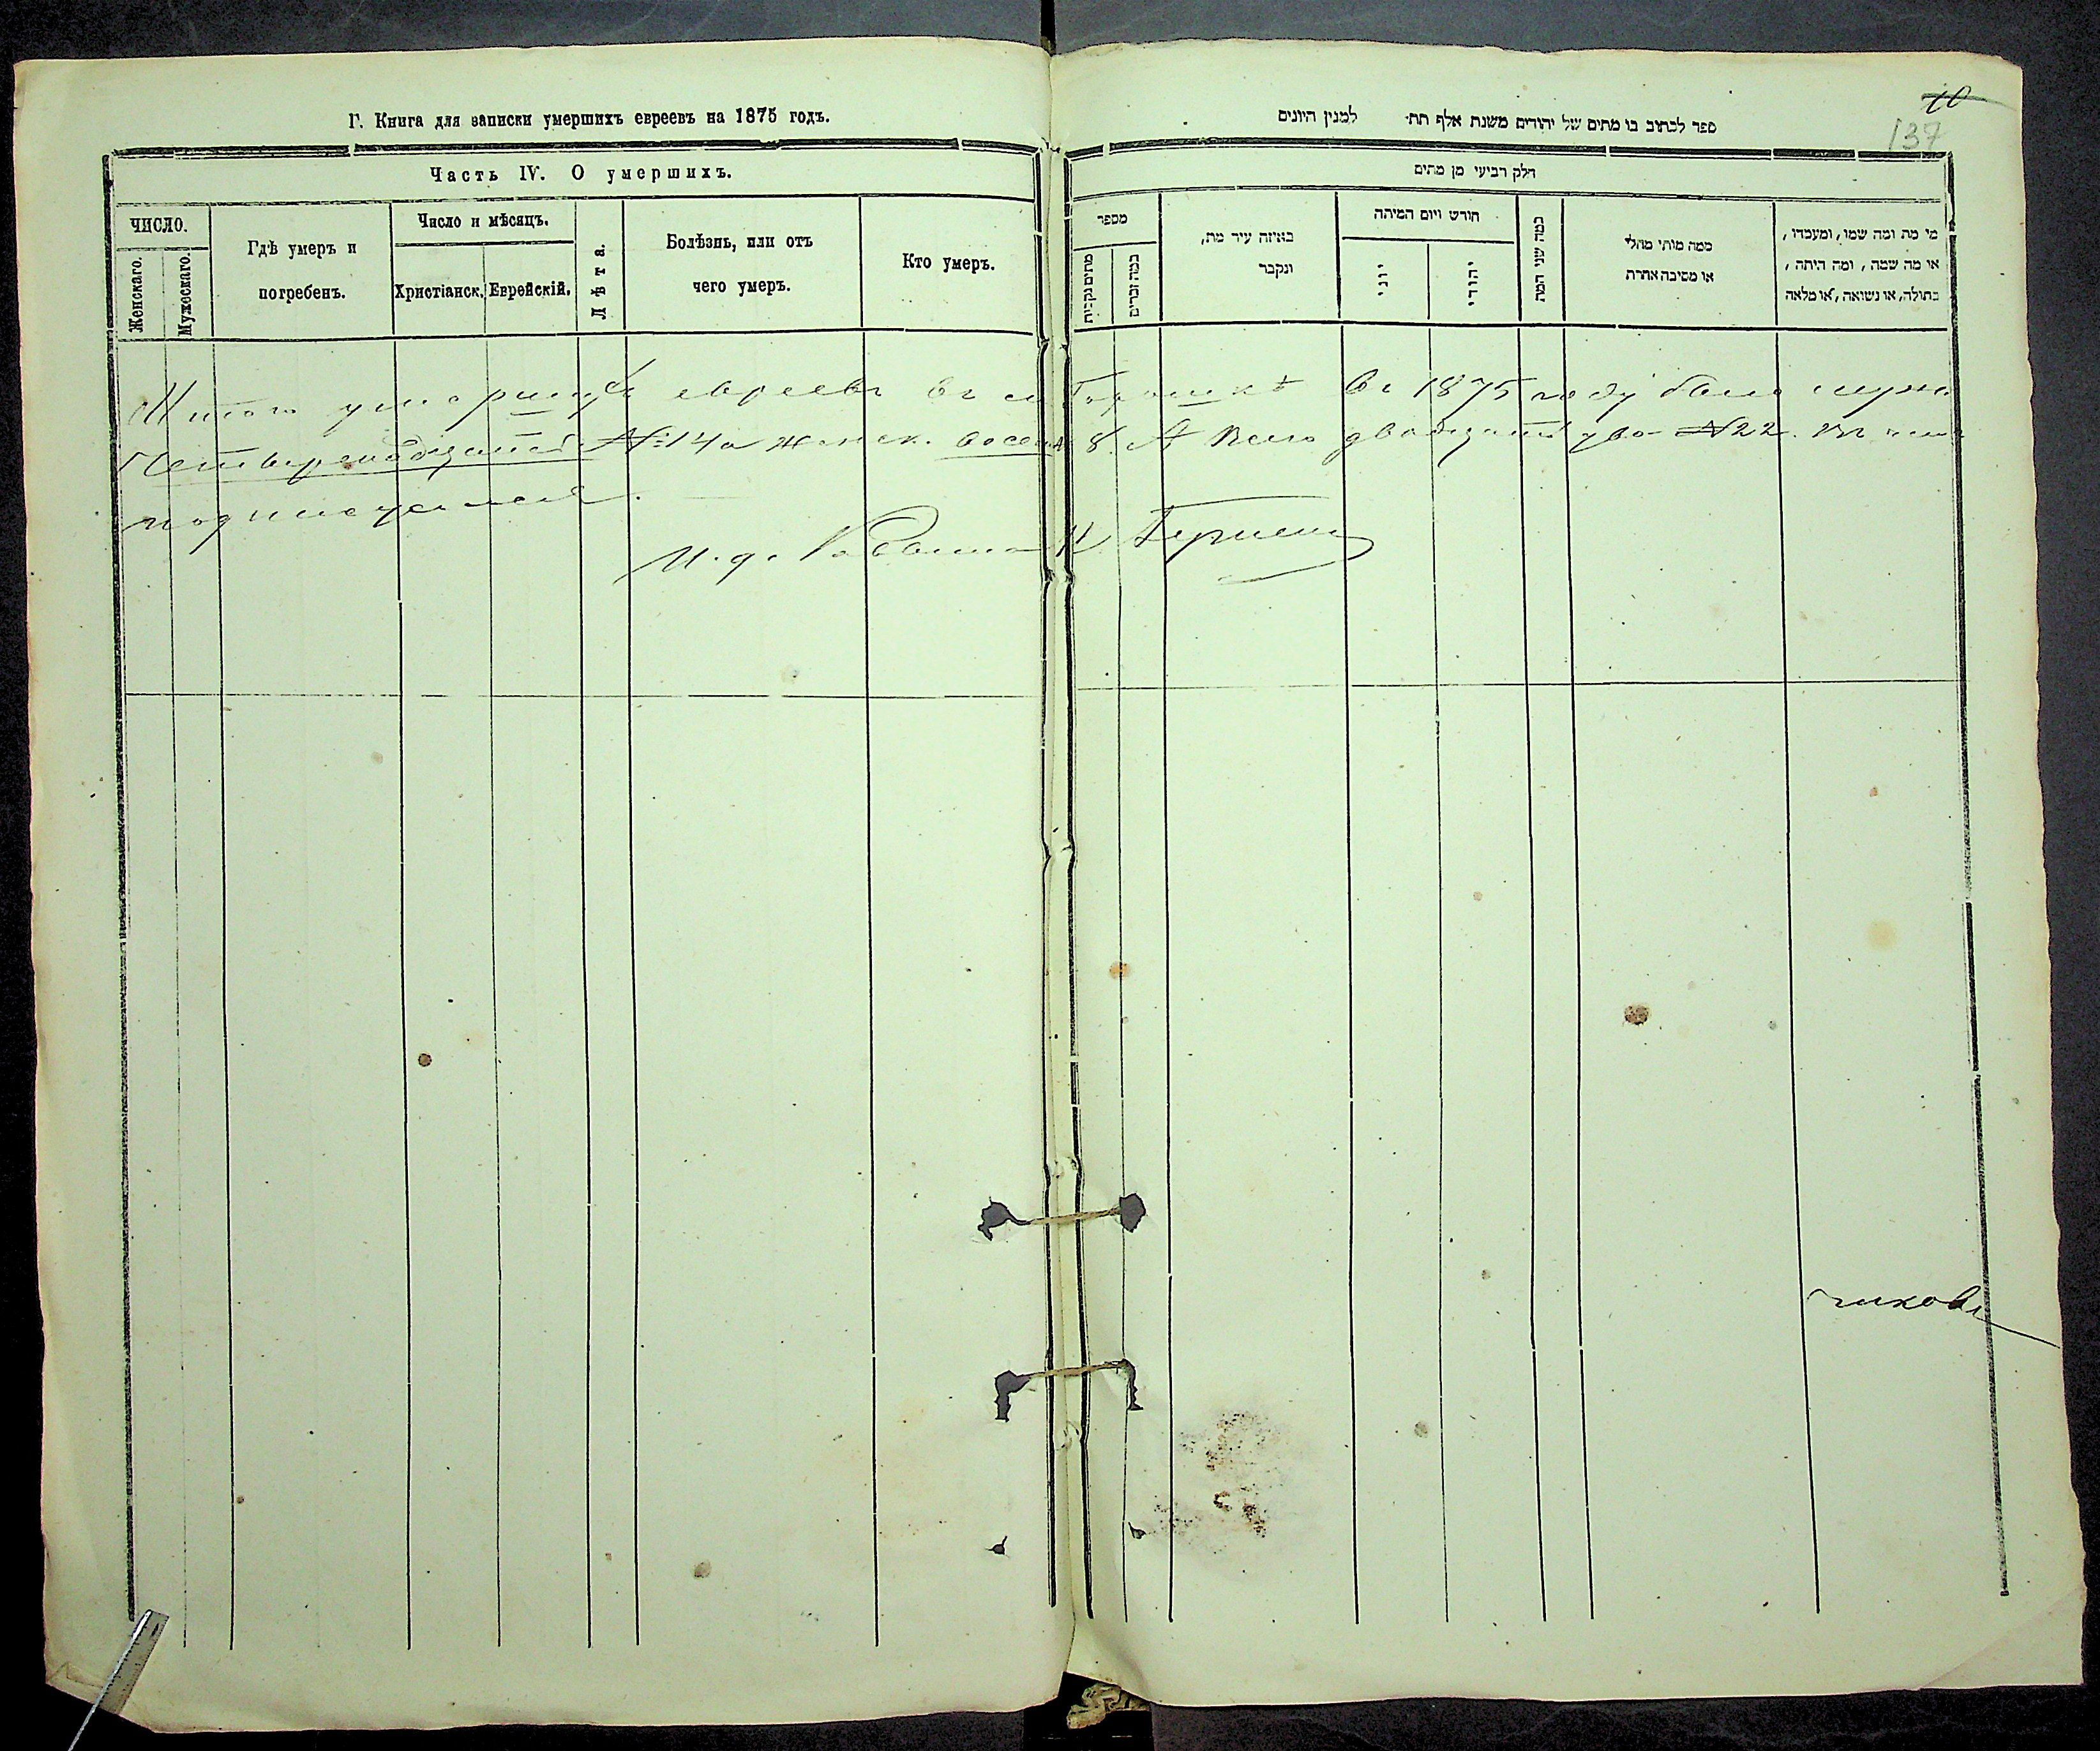 Г. Книга для записки умершихъ евреевъ на 1875 годъ.
Часть IV. О умершихъ.
ЧИСЛО.
Женскаго.
Мужескаго.
Гдѣ умеръ и
погребенъ.
Число и мѣсяцъ.
Христіанск.
Еврейскій.
Лѣта.
Болѣзнь, или отъ
чего умеръ.
Кто умеръ.
10
137
ספר לכתוב בו מתים של יהודים משנת אלף תת׳ למנין היונים
חלק רביעי מן מתים
מספר
מתים נקבות
כמה זכרים
באיזה עיר מת,
ונקבר
חורש ויום המיתה
יוני
יהודי
כמה שני המת
כמה מותי מחלי
או מסיבה אחרת
מי מת ומה שמו, ומעמדו,
או מה שמה, ומה היתה,
בתולה, או נשואה, או מלאה
Итого умершихъ евреевъ въ м Горошкѣ въ 1875 году было муж.
Четырнадцать №14 а женск. восемь 8. А всего двадцать два №22. въ чемъ
подписуемся.
И. д. Раввина Н.
чиковъ